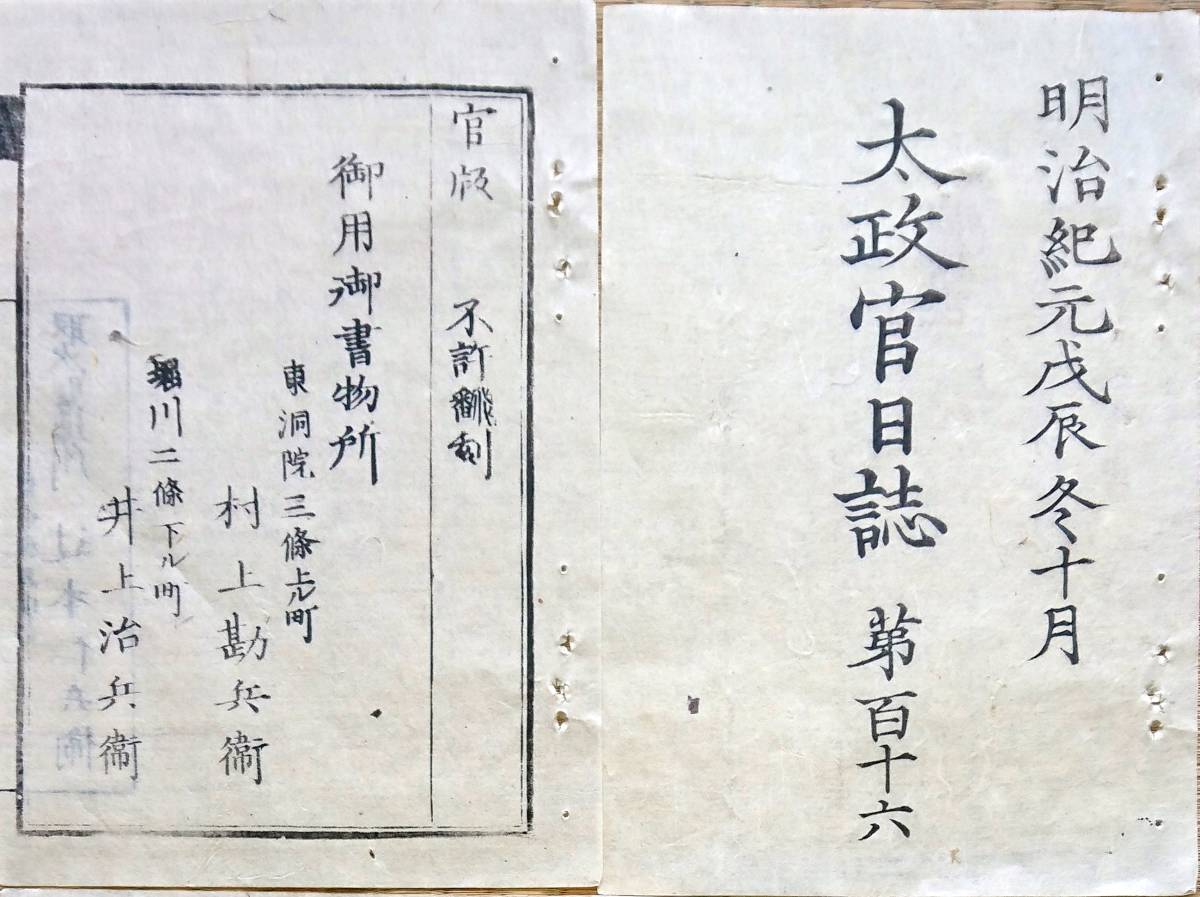 明治紀元戊辰冬十月
太政官日誌 第百十六
官版 不許翻刻
御用御書物所
東洞院三條上ル町
村上勘兵衞
堀川二條下ル町
井上治兵衞